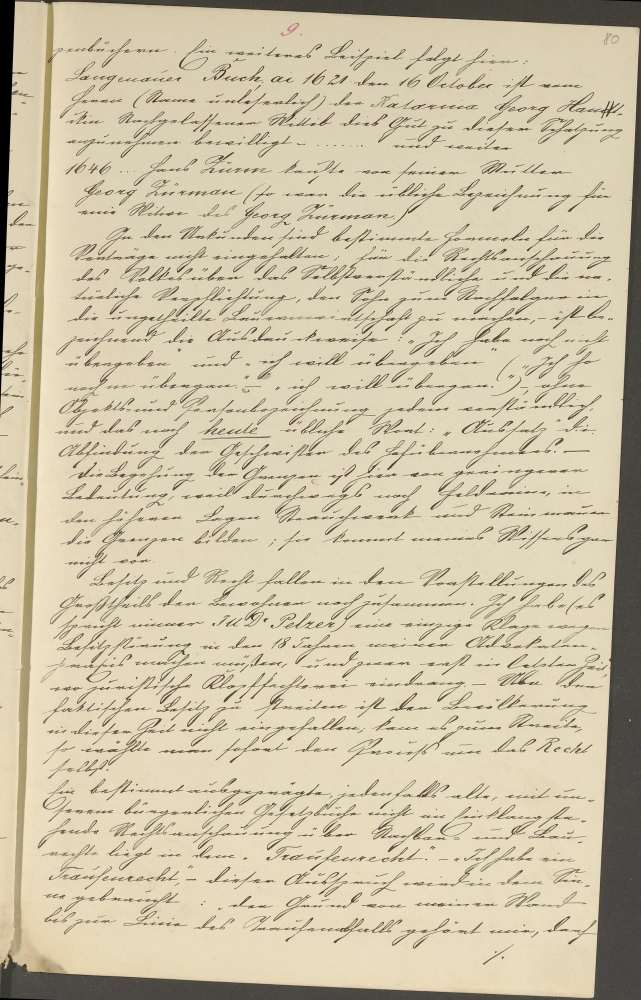 9.
80
penbüchern. Ein weiteres Beispiel folgt hier:
Langenauer Buch, ai 1621 den 16 October ist vom
Herrn (Name unleserlich) der Katarina Georg
Nachgelassener Wittib dies Gut zu dieser Schatzung
anzunehmen bewilligt – ...... und weiter
1646 ... Hans Zürm kaufte von seiner Mutter
Georg Zürman (so war die übliche Bezeichnung für
eine Witwe des Georg Zürman)
In den Urkunden sind bestimmte Formeln für die
Verträge nicht eingehalten, für die Rechtsanschauung
des Volkes über das Selbstverständliche und die na-
türliche Verpflichtung, den Sohn zum Nachfolger in
die ungetheilte zu machen, – ist be-
zeichnend die Ausdrucksweise: „Ich habe noch nicht
übergeben" und „ich will übergeben" („Ich ho
noch ne übergan." – „ich will übergan."), ohne
Objekts- und Personbezeichnung jedem verständlich,
und das noch heute übliche Wort: „Aussatz" die
Abfindung der Geschwister des . –
Die Begehung der Grenzen ist hier von geringerer
Bedeutung, weil durchwegs noch Feldraine, in
den höheren Lagen Strauchwerk und Steinmauern
die Grenzen bilden; sie kommt meines Wissens gar
nicht vor.
Besitz und Recht fallen in den Vorstellungen des
Großtheils der Bewohner noch zusammen. Ich habe (es
spricht immer JUDr Pelzer) eine einzige Klage wegen
Besitzstörung in den 18 Jahren meiner Advokaten-
praxis machen müssen, und zwar erst in letzter Zeit,
wo juristische Klopffechterei eindrang – Um den
faktischen Besitz zu streiten ist der Bevölkerung
in dieser Zeit nicht eingefallen; kam es zum Streite,
so wählte man sofort den Prozeß um das Recht
selbst.
Ein bestimmt ausgeprägte, jedenfalls alte, mit un-
serem bürgerlichen Gesetzbuche nicht im Einklang ste-
hende Rechtsanschauung über Nachbar- und Bau-
rechte liegt in dem „Traufenrecht". – „Ich habe ein
Traufenrecht," – dieser Ausspruch wird in dem Sin-
ne gebraucht: „der Grund von meiner Wand
bis zur Linie des Traufenfalls gehört mir, darf
./.